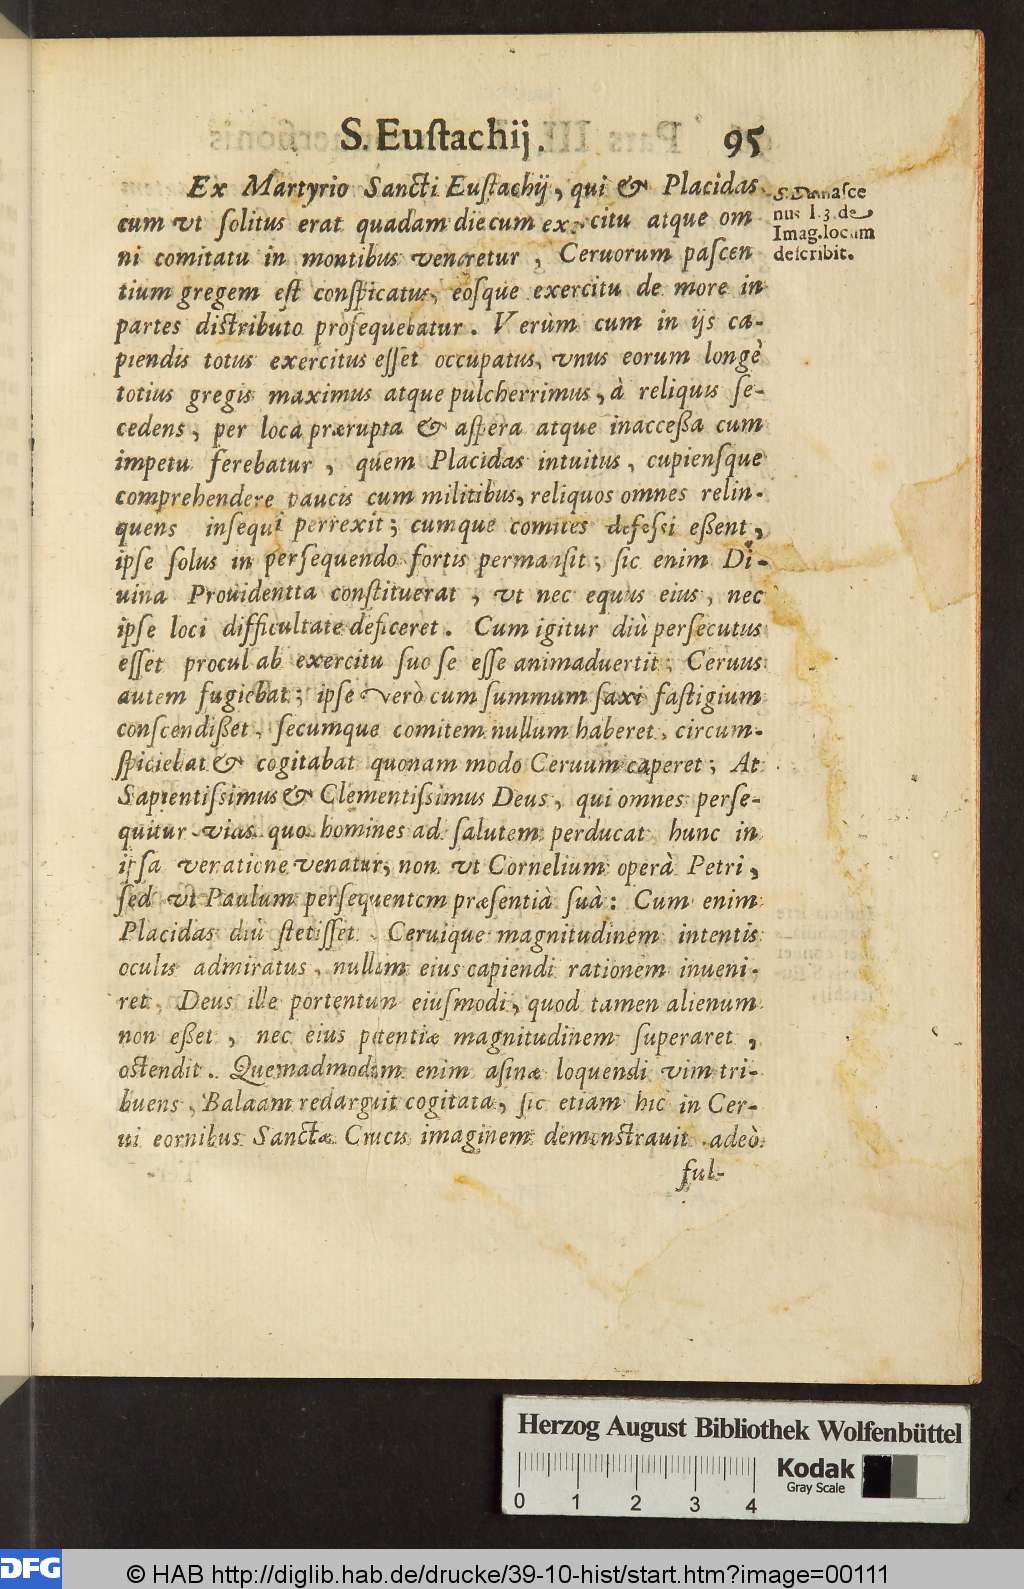 S. Euſtachij. 95
Ex Martyrio Sancti Euſtachij, qui & Placidas
cum vt ſolitus erat quadam die cum exercitu atque om
ni comitatu in montibus venaretur, Ceruorum paſcen
tium gregem eſt conſpicatus, eoſque exercitu de more in
partes diſtributo proſequebatur. Verùm cum in ijs ca-
piendis totus exercitus eſſet occupatus, vnus eorum longè
totius gregis maximus atque pulcherrimus, à reliquis ſe-
cedens, per loca prærupta & aſpera atque inacceßa cum
impetu ferebatur, quem Placidas intuitus, cupienſque
comprehendere paucis cum militibus, reliquos omnes relin-
quens inſequi perrexit; cumque comites defeſſi eßent,
ipſe ſolus in perſequendo fortis permanſit; ſic enim Di-
uina Prouidentta conſtituerat, vt nec equus eius, nec
ipſe loci difficultate deficeret. Cum igitur diù perſecutus
eſſet procul ab exercitu ſuo ſe eſſe animaduertit; Ceruus
autem fugiebat; ipſe verò cum ſummum ſaxi faſtigium
conſcendißet, ſecumque comitem nullum haberet, circum-
ſpiciebat & cogitabat quonam modo Ceruum caperet; At
Sapientiſsimus & Clementiſsimus Deus, qui omnes perſe-
quitur vias quo homines ad ſalutem perducat hunc in
ipſa veratione venatur, non vt Cornelium operà Petri,
ſed vt Paulum perſequentem præſentià ſuà: Cum enim
Placidas diù ſtetiſſet Ceruique magnitudinem intentis
oculis admiratus, nullam eius capiendi rationem inueni-
ret, Deus ille portentum eiuſmodi, quod tamen alienum
non eßet, nec eius potentiæ magnitudinem ſuperaret,
oſtendit. Quemadmodum enim aſinæ loquendi vim tri-
buens, Balaam redarguit cogitata, ſic etiam hic in Cer-
ui eornibus Sanctæ Crucis imaginem demonſtrauit adeò
ful-
S. Damaſce
nus l. 3. de
Imag. locum
deſcribit.
Herzog August Bibliothek Wolfenbüttel
0 1 2 3 4
Kodak
Gray Scale
DFG © HAB http://diglib.hab.de/drucke/39-10-hist/start.htm?image=00111